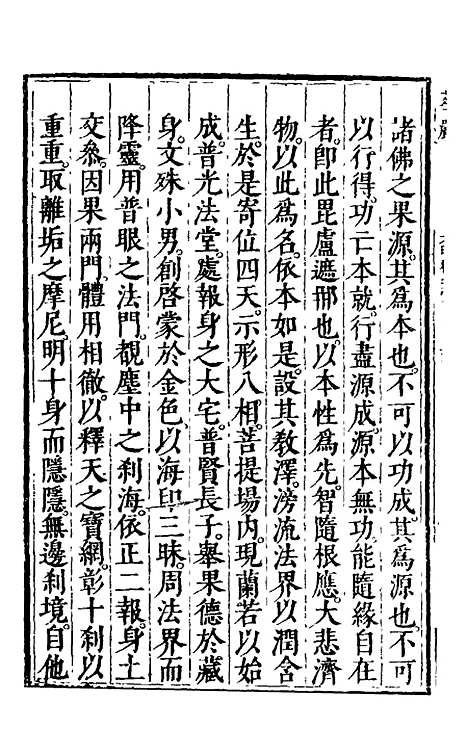 諸佛之果源其爲本也不可以功成其爲源也不可
以行得功亡本就行盡源成源本無功能隨緣自在
者卽此毘盧遮那也以本性爲先智隨根應大悲濟
物以此爲名依本如是設其敎澤滂流法界以潤含
生於是寄位四天示形八相菩提場內現蘭若以始
成普光法堂處報身之大宅普賢長子舉果德於藏
身文殊小男創啓蒙於金色以海印三昧周法界而
降靈用普眼之法門觀塵中之刹海依正二報身土
交叅因果兩門體用相徹以釋天之寶網彰十刹以
重重取離垢之摩尼明十身而隱隱無邊刹境自他